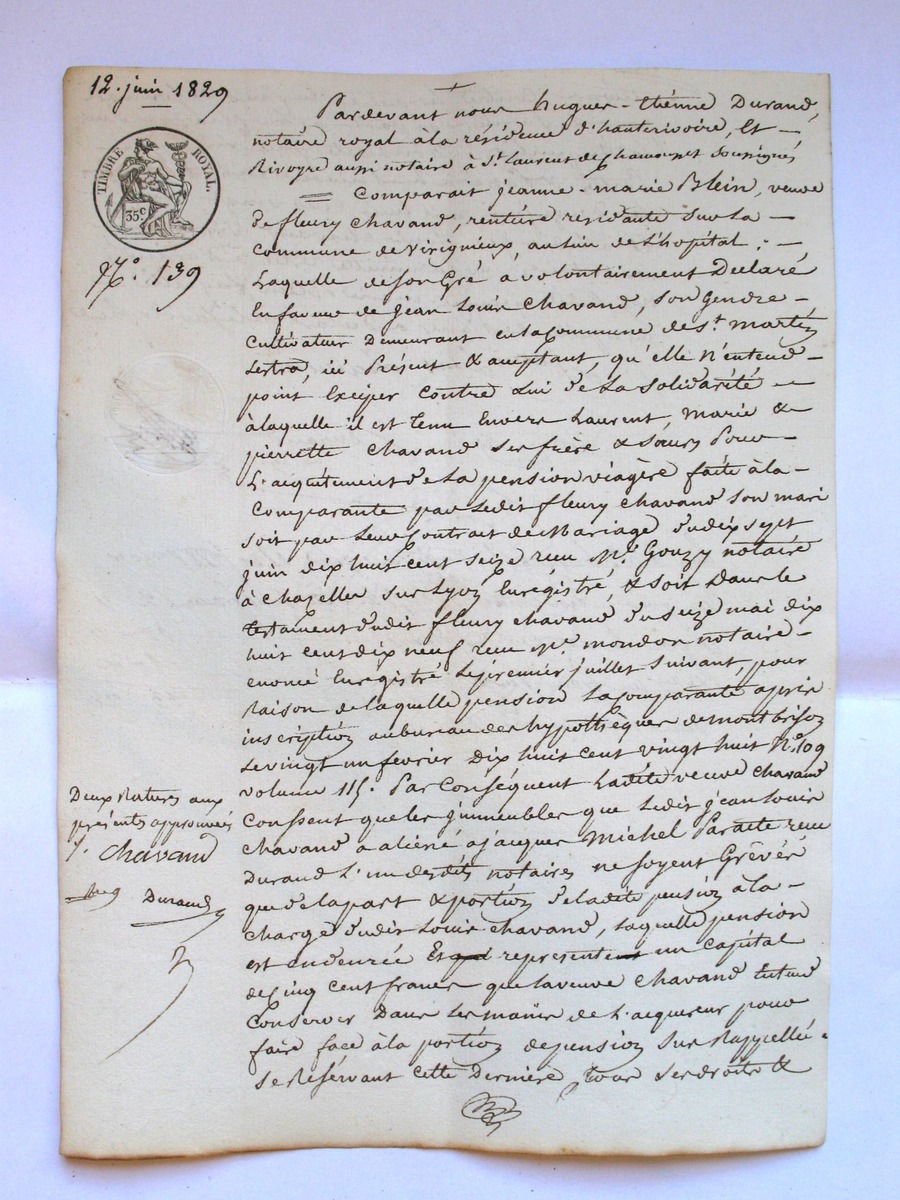 12. juin 1829
TIMBRE ROYAL.
35c
No. 139
Pardevant nous hugues-étienne Durand,
notaire royal à la résidence d'hauterivoire, Et
Rivoyre aussi notaire à St. Laurent de Chamousset Soussignés
Comparait jeanne-marie Blein, veuve
de fleury Chavand, rentiére residante sur La
commune de Virignieux, au lieu de L'hopital;
Laquelle de son Gré a volontairement Declaré
En faveur de jean Louis Chavand, son Gendre
cultivateur Demeurant en la Commune de St. Martin
Lestra, ici Présent & acceptant, qu'elle n'entend
point Exciper Contre Lui de La solidarité
à laquelle il est tenu Envers Laurent, Marie &
pierrette Chavand ses frère & soeurs Pour
L'acquitement de La pension viagère faite à la
Comparante par Ledit fleury Chavand son mari
soit par Leur Contrat de Mariage du dix sept
juin dix huit cent seize reçu Me. Gouzy notaire
à Chazelles sur Lyon Enregistré, & soit Dans le
testament dudit fleury Chavand du seize mai dix
huit cent dix neuf reçu Me. mondon notaire
enoncé Enregistré Le premier juillet Suivant, pour
Raison de laquelle pension La Comparante a pris
inscription au bureau des hypothèques de montbrison
Le vingt un fevrier Dix huit cent vingt huit No. 109
volume 115. Par Conséquent Ladite veuve Chavand
Consent que les jmmeubles que Ledit jean Louis
Chavand a aliéné a jacques Michel Par acte reçu
Durand L'un desdits notaires ne soyent Grêvés
que de la part & portion de ladite pension à la
charge dudit Louis Chavand, Laquelle pension
est en denrée Et represente un Capital
de Cinq cent francs que la veuve Chavand Entend
Conserver Dans Les mains de L'acquereur pour
faire face à la portion de pension sus Rappellée
se Réservant Cette Dernière, tous ses droits &
Deux Ratures aux
présentes approuvées
j. Chavand
Durand